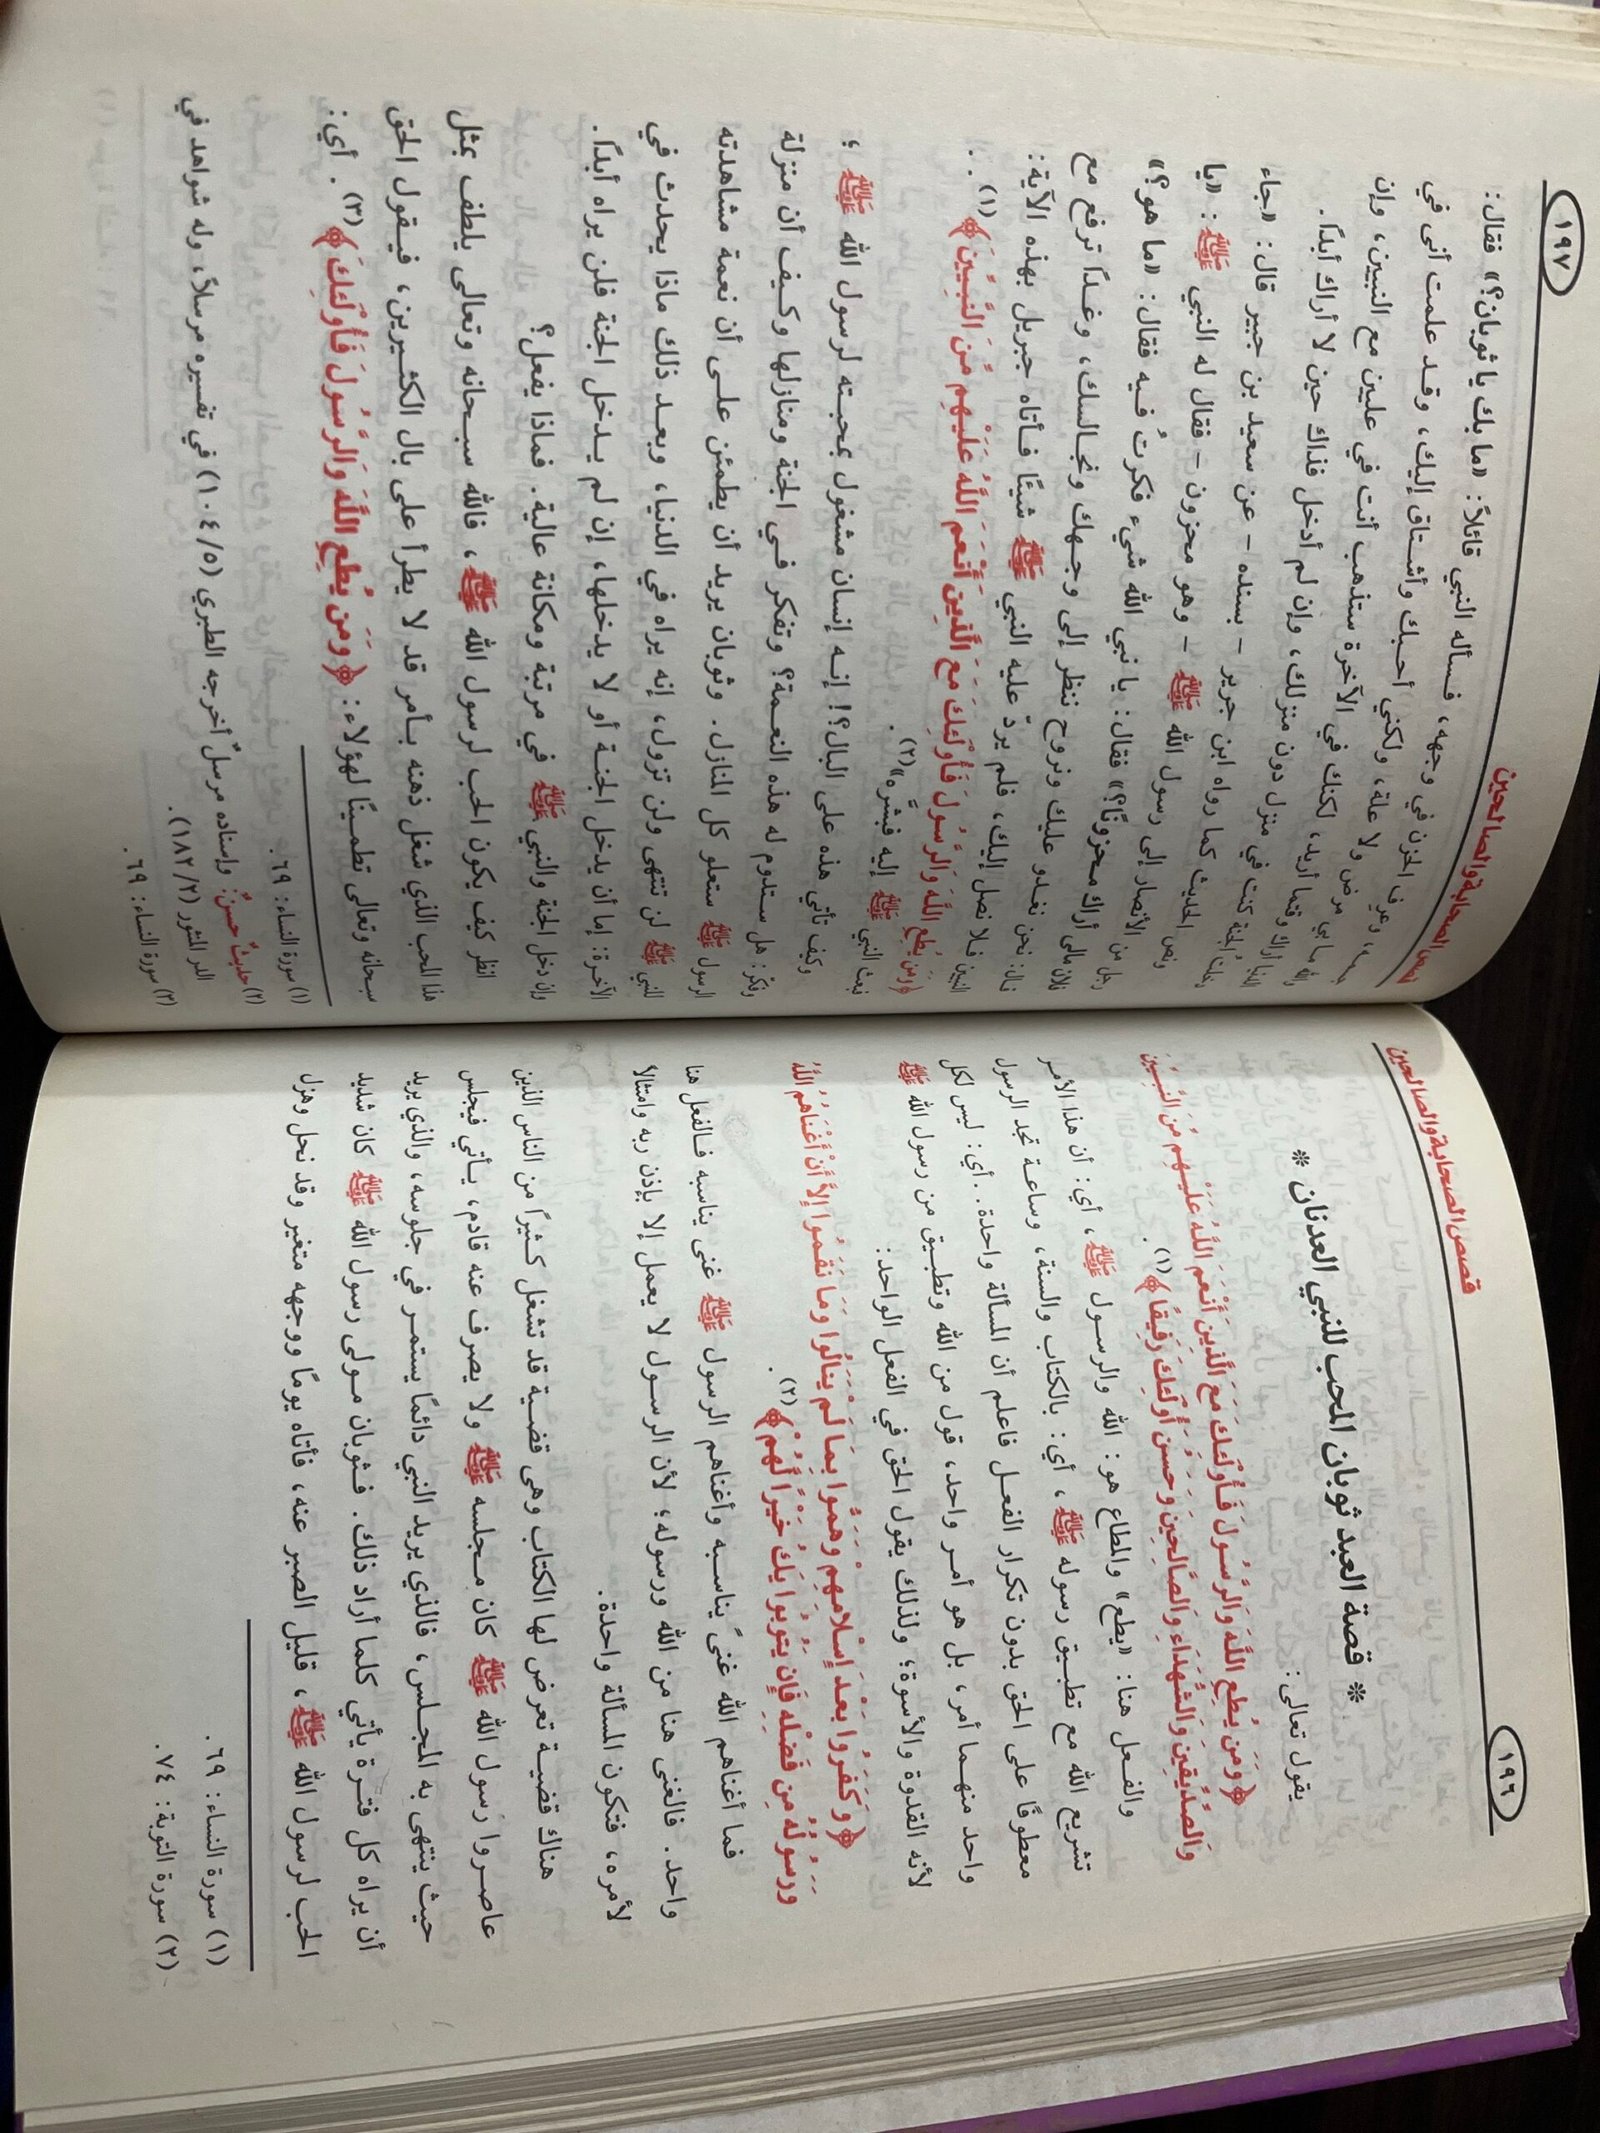 ١٩٦
قصص الصحابة والصالحين
* قصة العبد ثوبان المحب للنبي العدنان *
يقول تعالى:
﴿وَمَن يُطِعِ اللَّهَ وَالرَّسُولَ فَأُوْلَئِكَ مَعَ الَّذِينَ أَنْعَمَ اللَّهُ عَلَيْهِم مِّنَ النَّبِيِّينَ
وَالصِّدِّيقِينَ وَالشُّهَدَاءِ وَالصَّالِحِينَ وَحَسُنَ أُولَئِكَ رَفِيقًا﴾(١).
والفـعل هنا: «يطع» والمطاع هو: الله والرسول ﷺ، أي: أن هذا الأمر
تشريع الله مع تطبيق رسوله ﷺ، أي: بالكتاب والسنة، وساعة تجد الرسول
معطوفًا على الحق بدون تكرار الفعل فاعلم أن المسألة واحدة.. أي: ليس لكل
واحد منهما أمر، بل هو أمر واحد، قول من الله وتطبيق من رسول الله ﷺ
لأنه القدوة والأسوة؛ ولذلك يقول الحق في الفعل الواحد:
﴿وَكَفَرُوا بَعْدَ إِسْلامِهِمْ وَهَمُّوا بِمَا لَمْ يَنَالُوا وَمَا نَقَمُوا إِلاَّ أَنْ أَغْنَاهُمُ اللَّهُ
وَرَسُولُهُ مِن فَضْلِهِ فَإِن يَتُوبُوا يَكُ خَيْرًا لَّهُمْ﴾(٢).
فما أغناهم الله غنىً يناسبه وأغناهم الرسول ﷺ غنى يناسبه فالفعل هنا
واحد. فالغنى هنا من الله ورسوله؛ لأن الرسول لا يعمل إلا بإذن ربه وامتثالاً
لأمره، فتكون المسألة واحدة.
هناك قضية تعرض لها الكتاب وهى قضية قد تشغل كثيرًا من الناس الذين
عاصروا رسول الله ﷺ كان مجلسه ﷺ ولا يصرف عنه قادم، يأتي فيجلس
حيث ينتهى به المجلس، فالذي يريد النبي دائمًا يستمر في جلوسه، والذي يريد
أن يراه كل فترة يأتي كلما أراد ذلك. فثوبان مولى رسول الله ﷺ كان شديد
الحب لرسول الله ﷺ، قليل الصبر عنه، فأتاه يومًا ووجهه متغير وقد نحل وهزل
(١) سورة النساء: ٦٩.
(٢) سورة التوبة: ٧٤.
قصص الصحابة والصالحين
١٩٧
وعرف الحزن في وجهه، فسأله النبي قائلاً: «ما بك يا ثوبان؟» فقال:
والله ما بي مرض ولا علة، ولكني أحبك وأشتاق إليك، وقد علمت أنى في
الدنيا أراك وقتما أريد، لكنك في الآخرة ستذهب أنت في عليين مع النبيين، وإن
دخلتُ الجنة كنت في منزل دون منزلك، وإن لم أدخل فذاك حين لا أراك أبدًا.
ونص الحديث كما رواه ابن جرير - بسنده - عن سعيد بن جبير قال: «جاء
رجل من الأنصار إلى رسول الله ﷺ - وهو محزون - فقال له النبي ﷺ: «يا
فلان مالى أراك محزونًا؟» فقال: يا نبي الله شيء فكرتُ فيه فقال: «ما هو؟»
قال: نحن نغدو عليك ونروح ننظر إلى وجهك ونجالسك، وغدًا ترفع مع
النبيين فلا نصل إليك، فلم يردّ عليه النبي ﷺ شيئًا فأتاه جبريل بهذه الآية:
﴿وَمَن يُطِعِ اللَّهَ وَالرَّسُولَ فَأُوْلَئِكَ مَعَ الَّذِينَ أَنْعَمَ اللَّهُ عَلَيْهِم مِّنَ النَّبِيِّينَ﴾(١)..
فبعث النبي ﷺ إليه فبشّره»(٢).
وكيف تأتي هذه على البال؟! إنه إنسان مشغول بمحبته لرسول الله ﷺ؛
وفكّر: هل ستدوم له هذه النعمة؟ وتفكر في الجنة ومنازلها وكيف أن منزلة
الرسول ﷺ ستعلو كل المنازل. وثوبان يريد أن يطمئن على أن نعمة مشاهدته
للنبي ﷺ لن تنتهى ولن تزول، إنه يراه في الدنيا، وبعد ذلك ماذا يحدث في
الآخرة: إما أن يدخل الجنة أو لا يدخلها، إن لم يدخل الجنة فلن يراه أبدًا.
وإن دخل الجنة والنبي ﷺ في مرتبة ومكانة عالية. فماذا يفعل؟
انظر كيف يكون الحب لرسول الله ﷺ، فالله سبحانه وتعالى يلطف بمثل
هذا المحب الذي شغل ذهنه بأمر قد لا يطرأ على بال الكثيرين، فيقول الحق
سبحانه وتعالى تطمينًا لهؤلاء: ﴿وَمَن يُطِعِ اللَّهَ وَالرَّسُولَ فَأُوْلَئِكَ﴾(٣). أي:
(١) سورة النساء: ٦٩.
(٢) حديثٌ حسنٌ: وإسناده مرسلٌ أخرجه الطبري (٥/ ١٠٤) في تفسيره مرسلاً، وله شواهد في
الدر المنثور (٢/ ١٨٢).
(٣) سورة النساء: ٦٩.